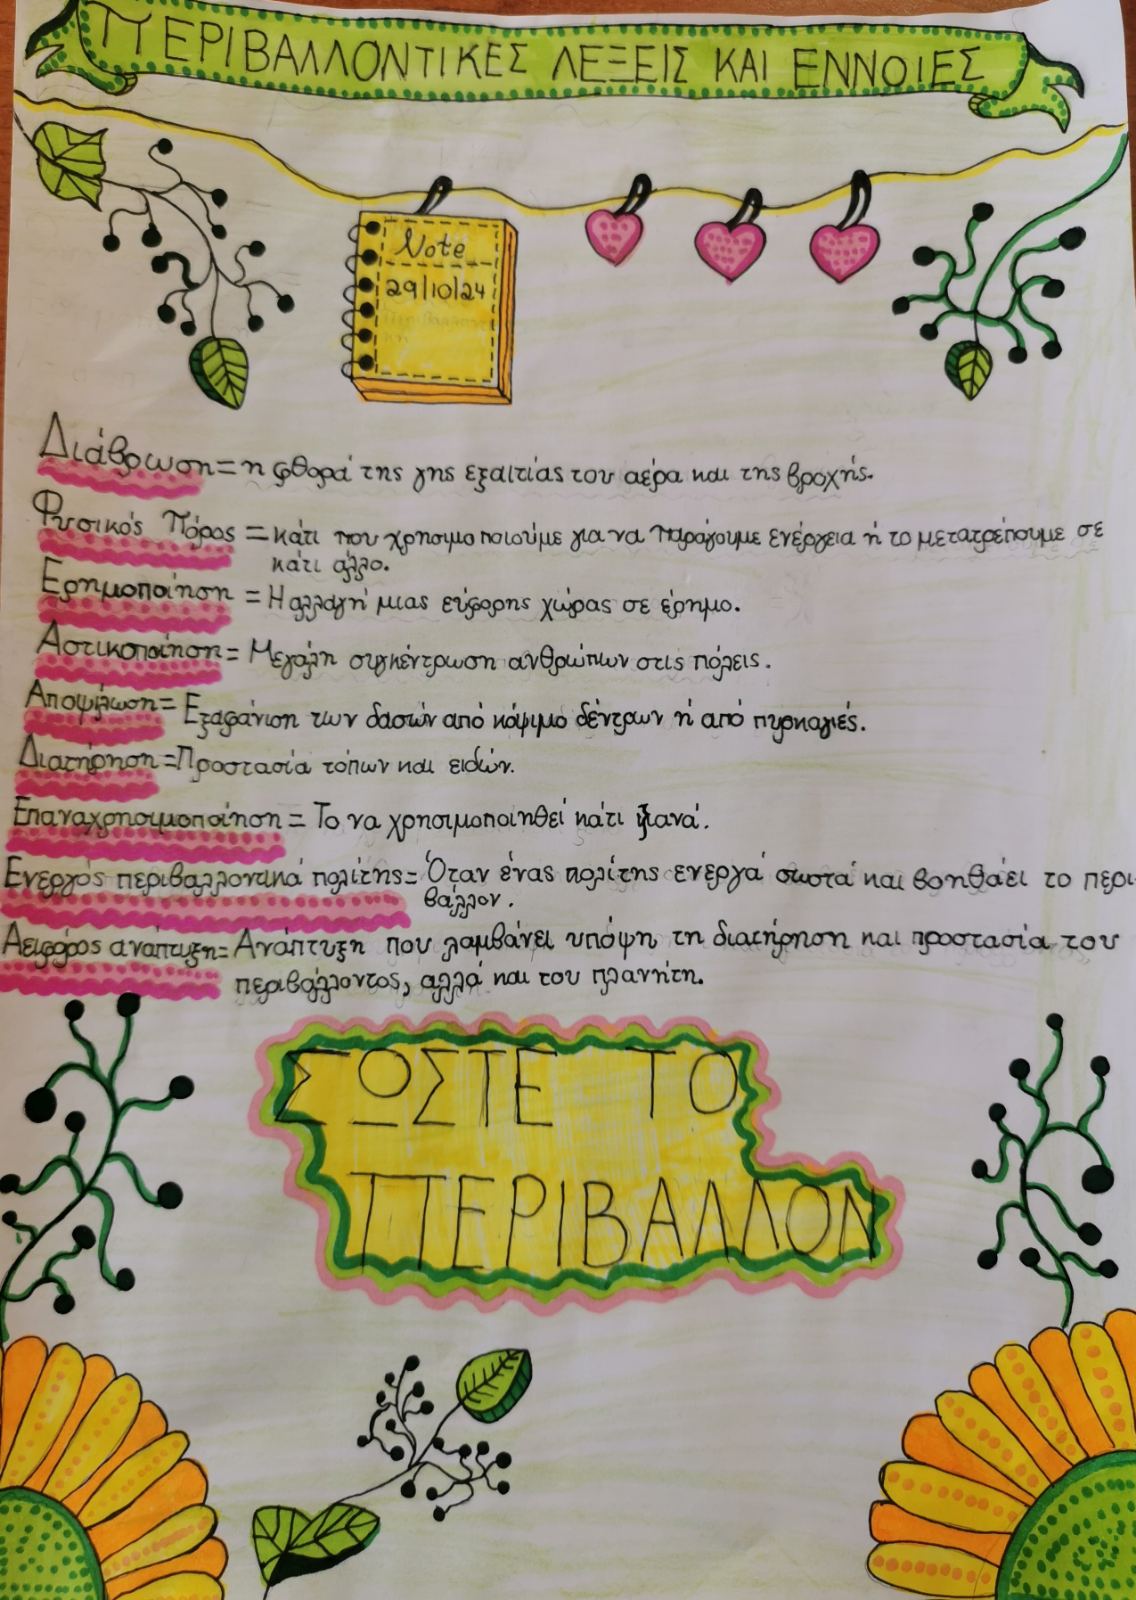 ΠΕΡΙΒΑΛΛΟΝΤΙΚΕΣ ΛΕΞΕΙΣ ΚΑΙ ΕΝΝΟΙΕΣ
Note
29/10/24
Διάβρωση = η φθορά της γης εξαιτίας του αέρα και της βροχής.
Φυσικός Πόρος = κάτι που χρησιμοποιούμε για να παράγουμε ενέργεια ή το μετατρέπουμε σε
κάτι άλλο.
Ερημοποίηση = Η αλλαγή μιας εύφορης χώρας σε έρημο.
Αστικοποίηση = Μεγάλη συγκέντρωση ανθρώπων στις πόλεις.
Αποψίλωση = Εξαφάνιση των δασών από κόψιμο δέντρων ή από πυρκαγιές.
Διατήρηση = Προστασία τόπων και ειδών.
Επαναχρησιμοποίηση = Το να χρησιμοποιηθεί κάτι ξανά.
Ενεργός περιβαλλοντικά πολίτης = Όταν ένας πολίτης ενεργά σωστά και βοηθάει το περι-
βάλλον.
Αειφόρος ανάπτυξη = Ανάπτυξη που λαμβάνει υπόψη τη διατήρηση και προστασία του
περιβάλλοντος, αλλά και του πλανήτη.
ΣΩΣΤΕ ΤΟ
ΠΕΡΙΒΑΛΛΟΝ